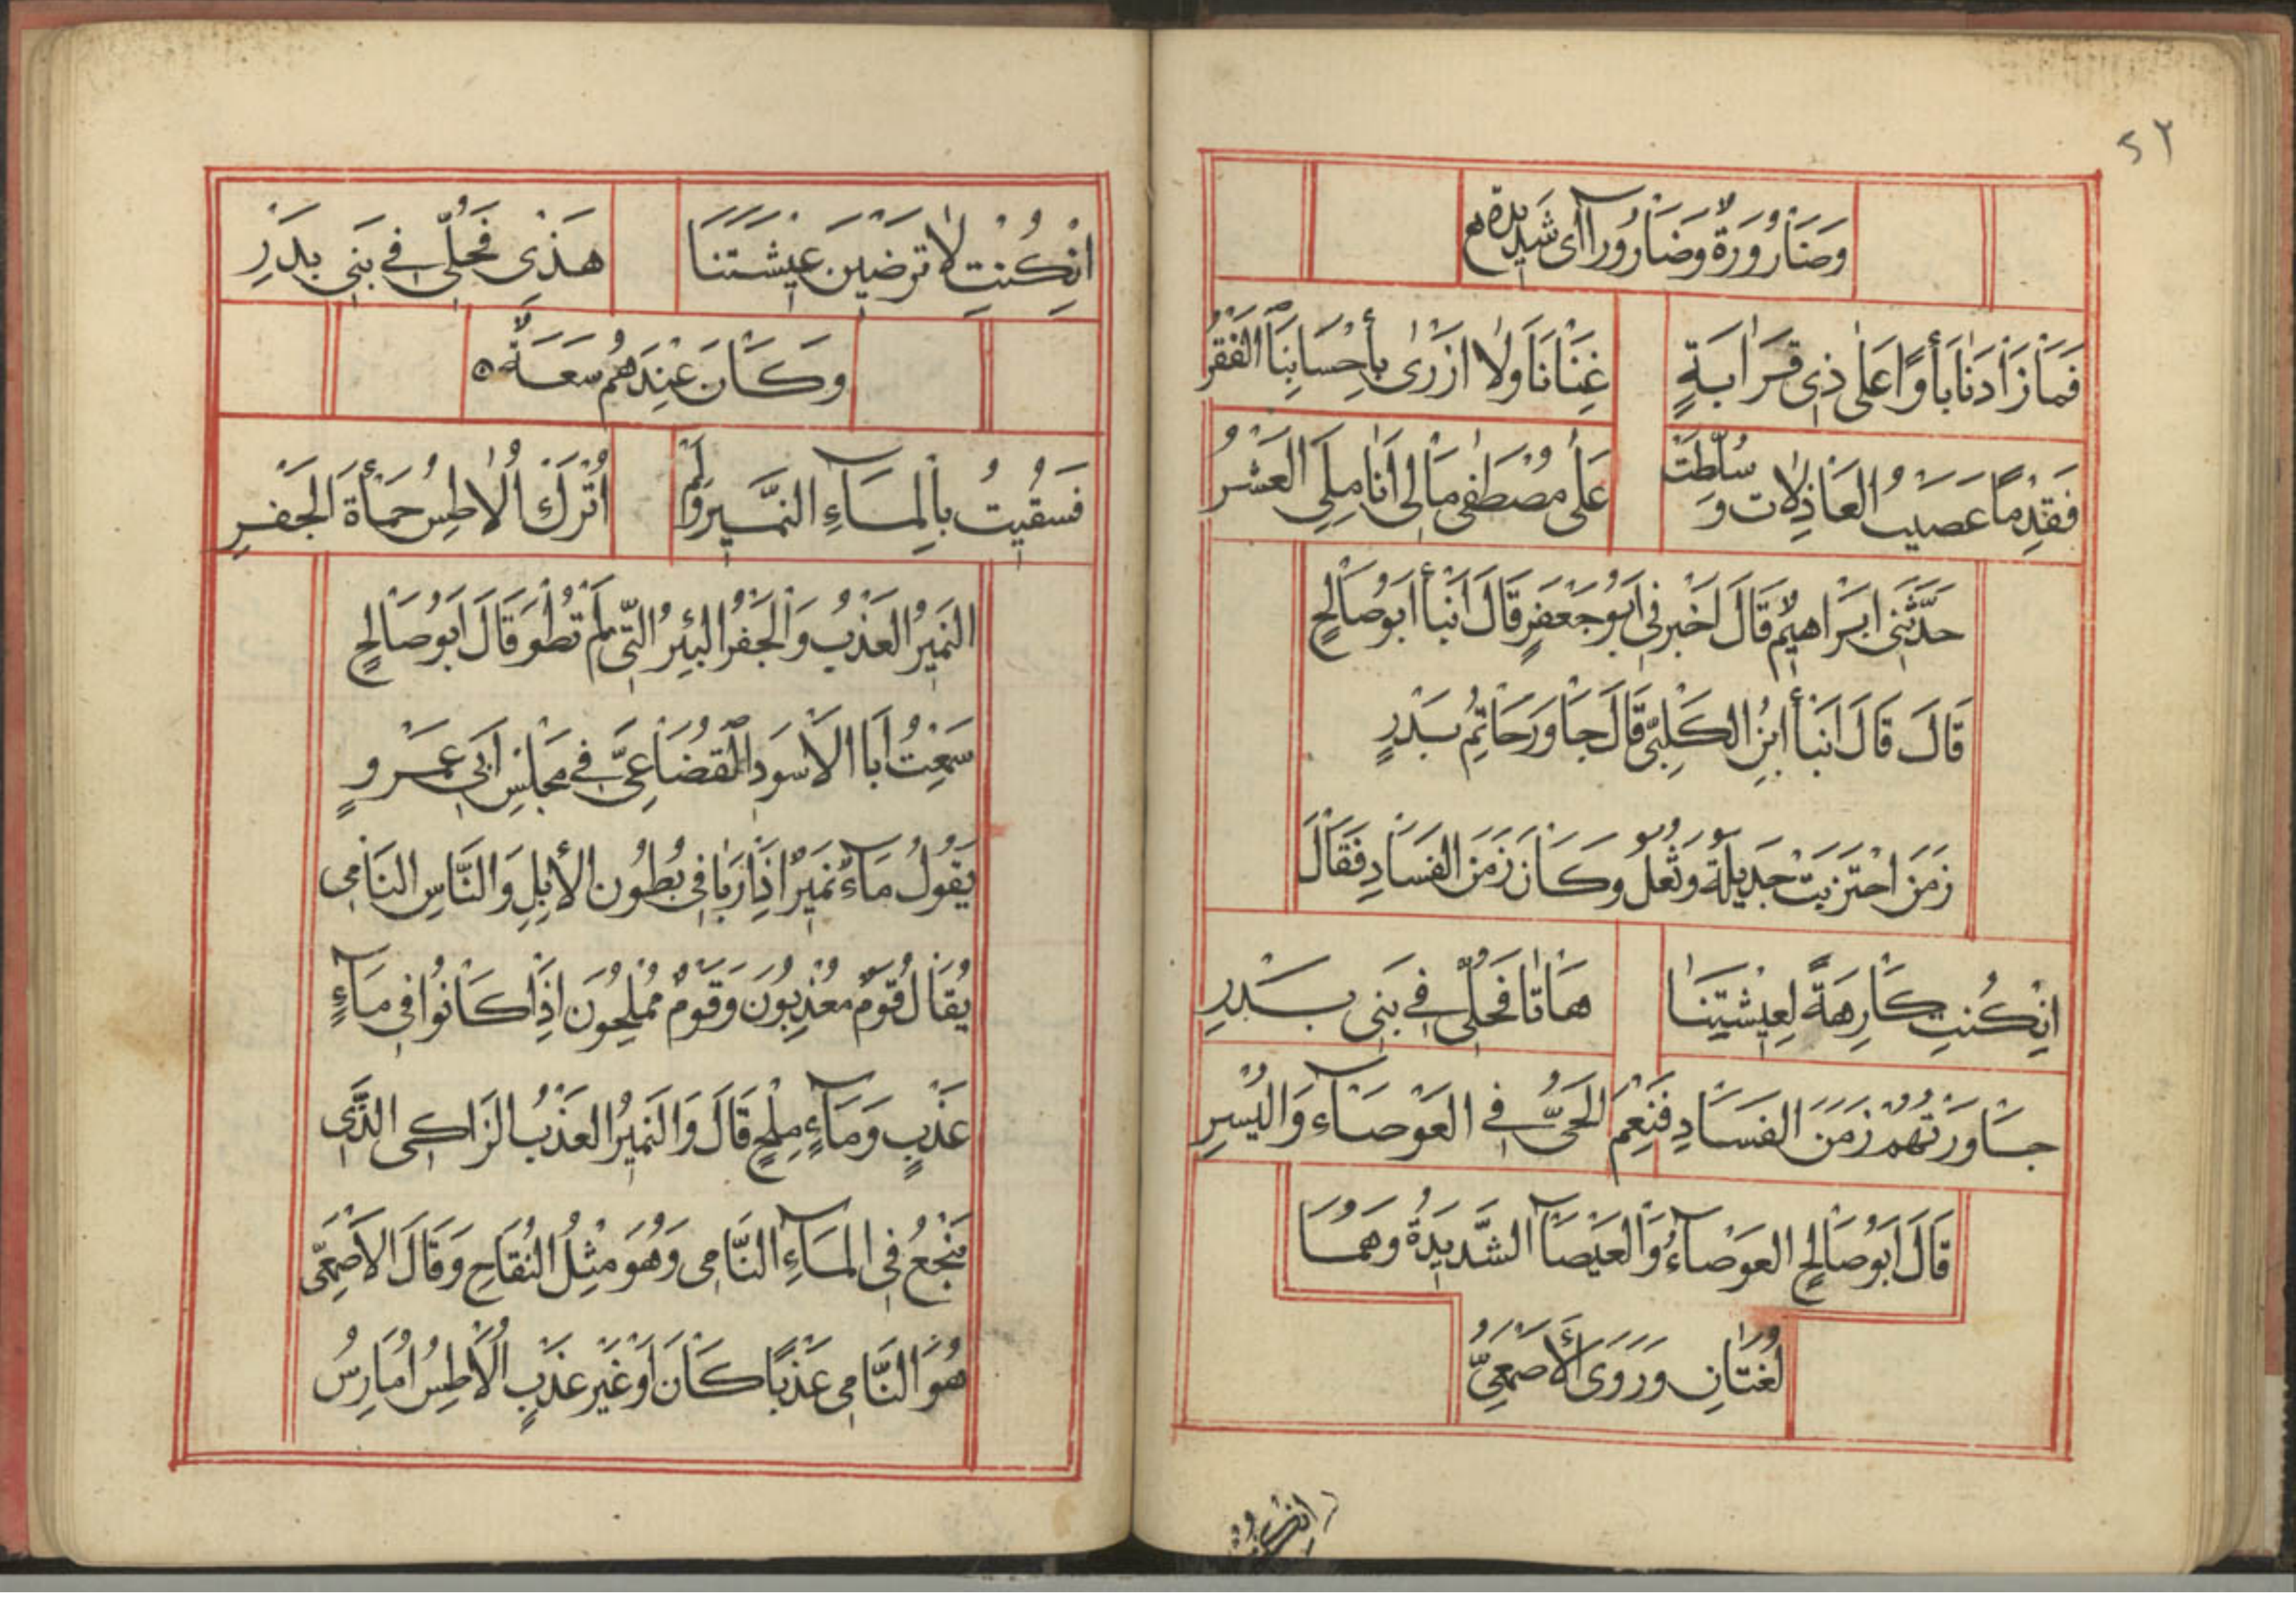 ٥٢
وَضَارُورَةٌ وَضَارُورَاآى شَدِيدَة
فَمَا زَادَنَا بَأْوًا عَلَى ذِى قَرَابَةٍ غِنَانَا وَلَا ازْرٰى بِأَحْسَابِنَا الْفَقْرُ
فَقِدْمًا عَصَيْتُ الْعَاذِلَاتِ وَسُلِّطَتْ عَلَى مُصْطَفٰى مَالِى أَنَامِلِىَ الْعَشْرُ
حَدَّثَنِى اِبْرَاهِيمُ قَالَ اَخْبَرَنِى اَبُوجَعْفَرٍ قَالَ اَنْبَأَ اَبُوصَالِحٍ
قَالَ قَالَ اَنْبَأَ ابْنُ الْكَلْبِىِّ قَالَ جَاوَرَ حَاتِمُ بَدْرٍ
زَمَنَ احْتَرَبَتْ جَدِيلَةُ وَثُعَلُ وَكَانَ زَمَنَ الْفَسَادِ فَقَالَ
اِنْ كُنْتِ كَارِهَةً لِعِيْشَتِنَا هَاتَا فَحُلِّى فِى بَنِى بَدْرِ
جَاوَرْتُهُمْ زَمَنَ الْفَسَادِ فَنِعْمَ الْحَىُّ فِى الْعَوْصَاءِ وَالْيُسْرِ
قَالَ اَبُوصَالِحٍ الْعَوْصَآءُ وَالْعَيْصَآ الشَّدِيدَةُ وَهُمَا
لُغَتَانِ وَرَوَى الْأَصْمَعِىُّ
اِنْ كُنْتِ
اِنْ كُنْتِ لَا تَرْضَيْنَ عِيْشَتَنَا هَذِى فَحُلِّى فِى بَنِى بَدْرِ
وَكَانَ عِنْدَهُمْ سَعَةٌ ٥
فَسُقِيتُ بِالْمَآءِ النَّمِيرِ وَلَمْ اُتْرَكْ اُلَاطِسُ حَمْأَةَ الْجَفْرِ
النَّمِيرُ الْعَذْبُ وَالْجَفْرُ الْبِئْرُ الَّتِى لَمْ تُطْوَ قَالَ اَبُوصَالِحٍ
سَمِعْتُ اَبَا الْاَسْوَدِ الْقُضَاعِىَّ فِى مَجْلِسِ اَبِى عَمْرٍو
يَقُولُ مَآءٌ نَمِيرٌ اِذَا رَبَا فِى بُطُونِ الْأِبِلِ وَالنَّاسِ النَّامِى
يُقَالُ قَوْمٌ مُعْذِبُونَ وَقَوْمٌ مُمْلِحُونَ اِذَا كَانُوا فِى مَآءٍ
عَذْبٍ وَمَآءٍ مِلْحٍ قَالَ وَالنَّمِيرُ الْعَذْبُ الزَّاكِى الَّذِى
يَنْجَعُ فِى الْمَآءِ النَّامِى وَهُوَ مِثْلُ النُّقَاخِ وَقَالَ الْاَصْمَعِىُّ
هُوَ النَّامِى عَذْبًا كَانَ اَوْ غَيْرَ عَذْبٍ اُلَاطِسُ اُمَارِسُ